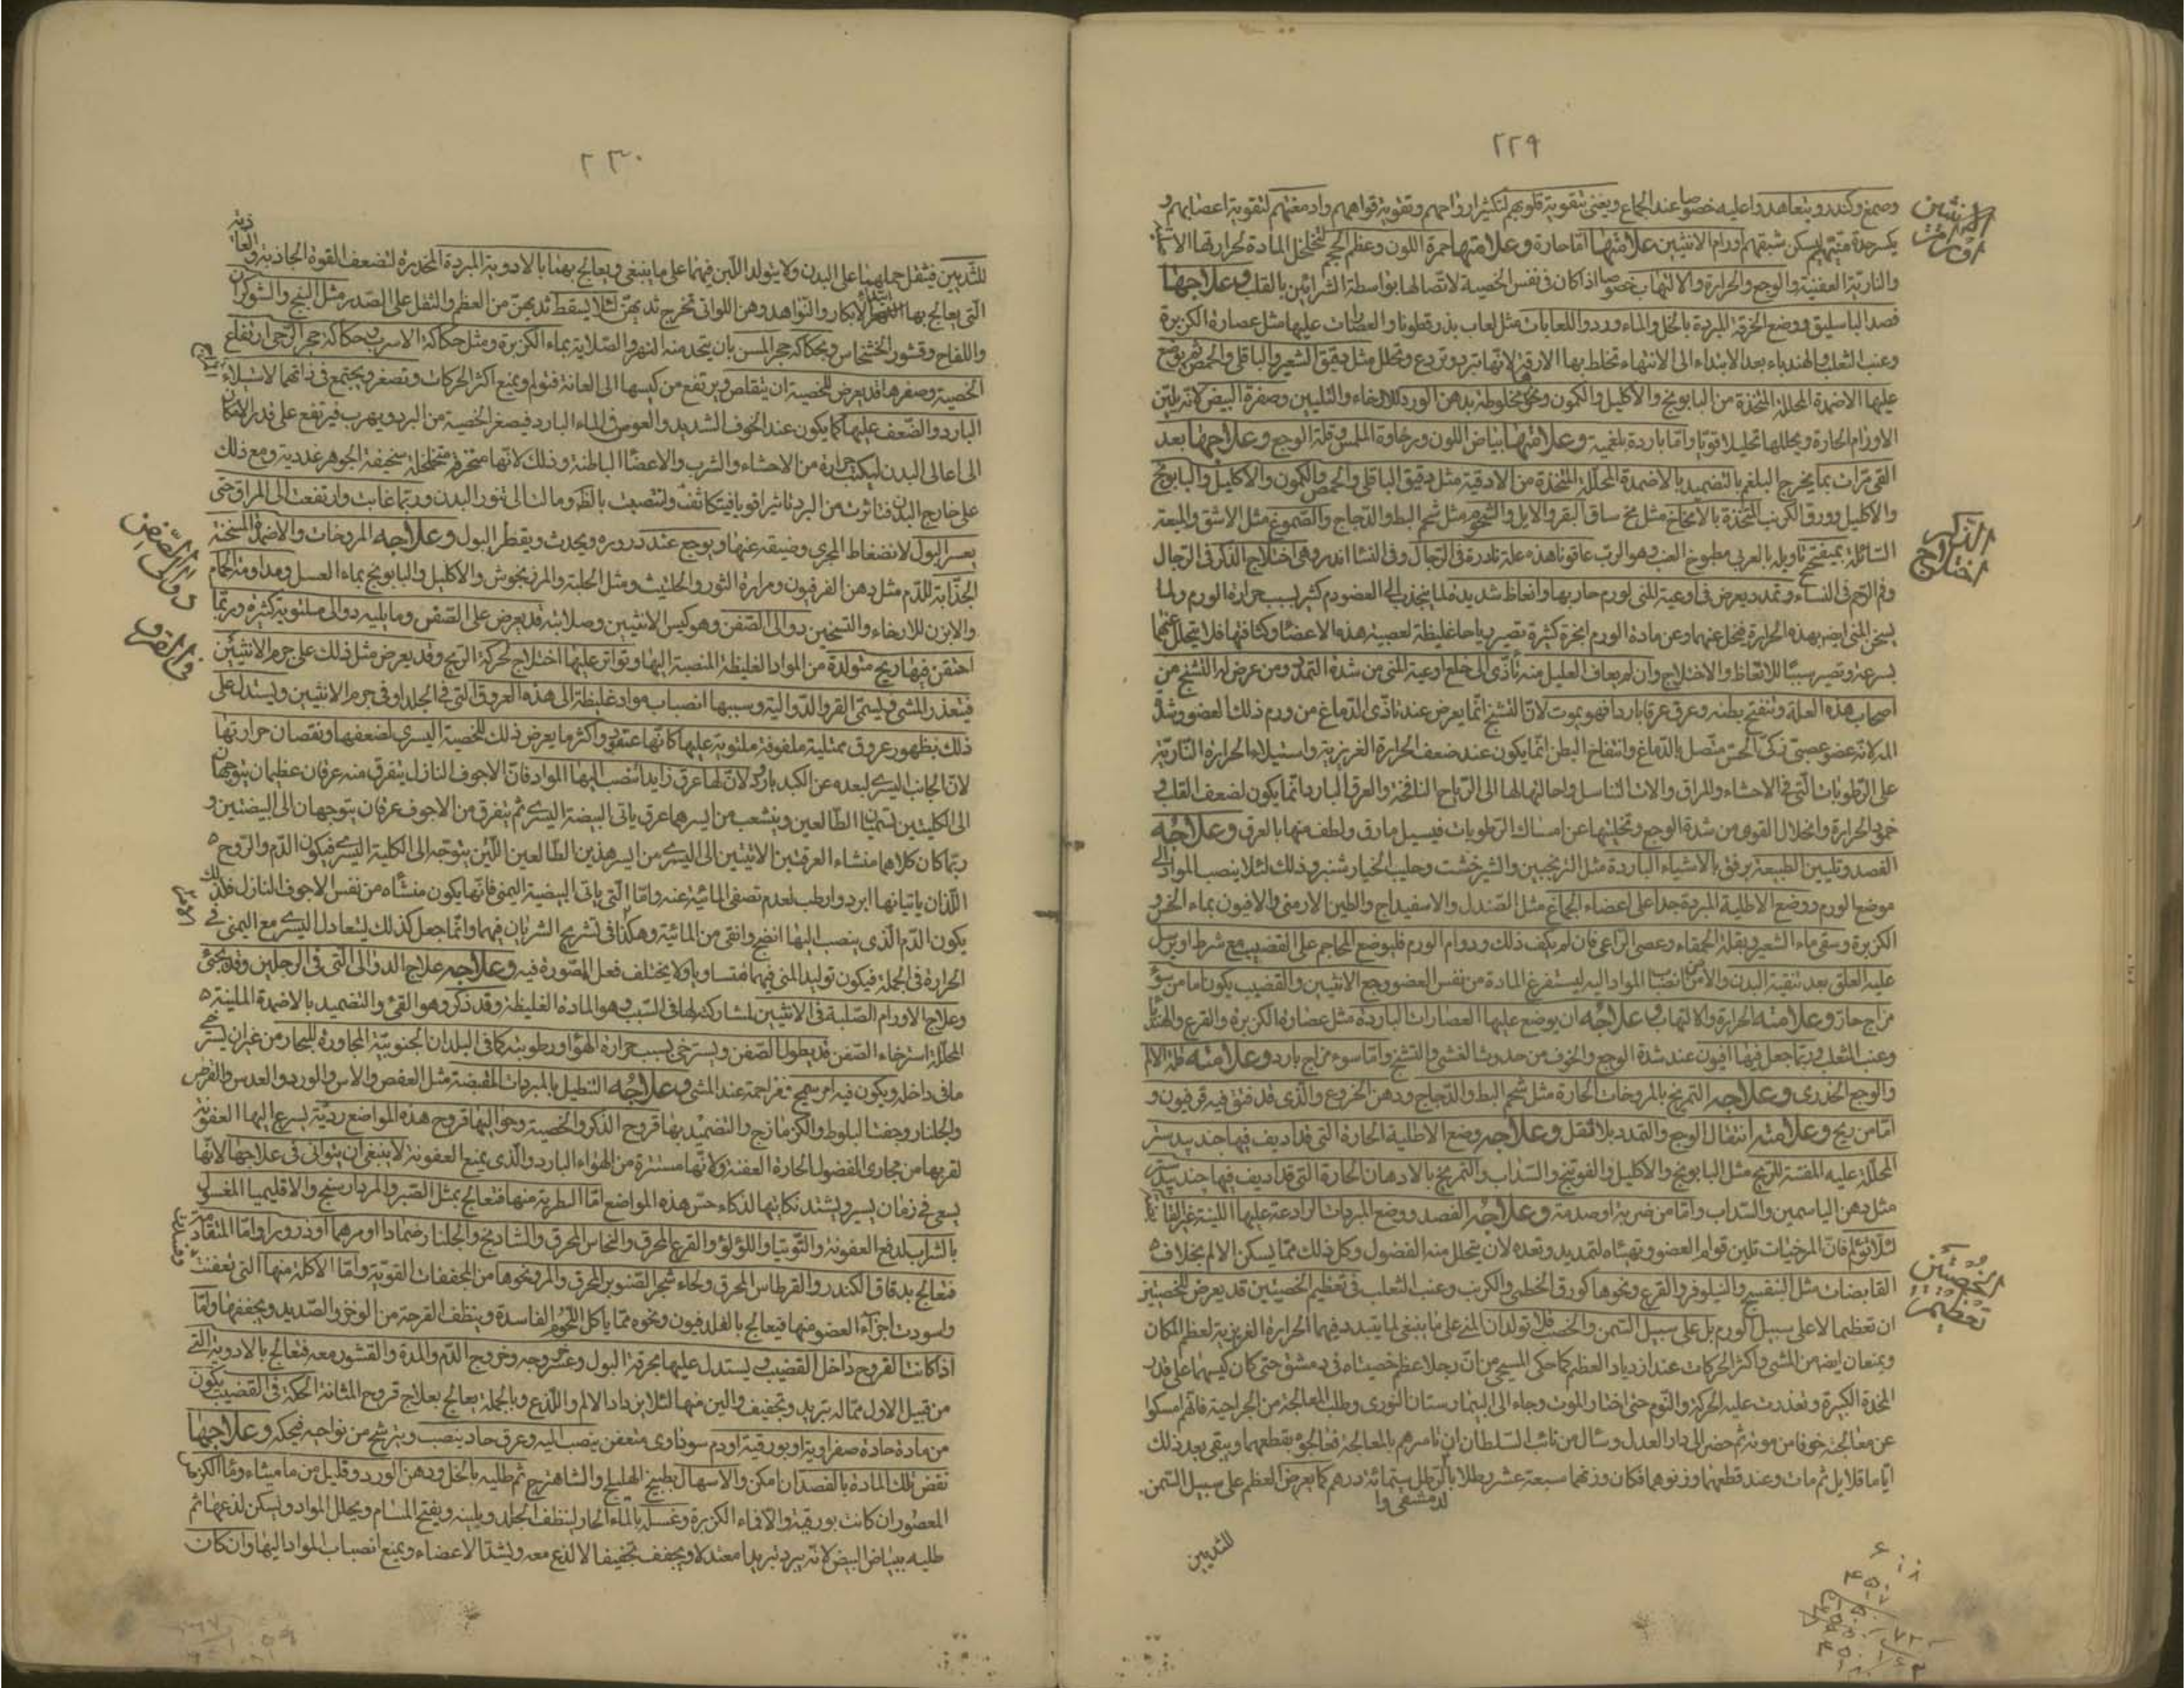 ٢٢٩
وصمغ وكندر ويتعاهدوا عليه خصوصا عند الجماع ويعنى بتقوية قلوبهم لتكثير ارواحهم وتقوية قواهم وادمغتهم لتقوية اعصابهم و
يكسر حدة منيهم ليسكن شبقهم اورام الانثيين علامتها اما حارة وعلامتها حمرة اللون وعظم الحجم لتخلخل المادة لحرارتها
اورام الانثيين
والنارية العفنية والوجع والحرارة والالتهاب خصوصا اذا كان في نفس الخصية لاتصالها بواسطة الشرائين بالقلب وعلاجها
فصد الباسليق ووضع الخرقة المبردة بالخل والماء ورد واللعابات مثل لعاب بذر قطونا والعصارات عليها مثل عصارة الكزبرة
وعنب الثعلب والهندباء بعد الابتداء الى الانتهاء تخلط بها الادقة لانها تبرد وتردع وتحلل مثل دقيق الشعير والباقلى والحمص ثم يوضع
عليها الاضمدة المحللة المتخذة من البابونج والاكليل والكمون ونحوه مخلوطة بدهن الورد للارخاء والتليين وصفرة البيض لانه يلين
الاورام الحارة ويحللها تحليلا قويا واما باردة بلغمية وعلامتها بياض اللون ورخاوة الملمس وقلة الوجع وعلاجها بعد
القئ مرات بما يخرج البلغم بالتضميد بالاضمدة المحللة المتخذة من الادقة مثل دقيق الباقلى والحمص والكمون والاكليل والبابونج
والاكليل وورق الكرنب المتخذة بالامخاخ مثل مخ ساق البقر والايل والشحوم مثل شحم البط والدجاج والصموغ مثل الاشق والميعة
السائلة بميفختج تاويله بالعربي مطبوخ العنب وهو الرب عاقونا هذه علة نادرة في الرجال وفي النساء اندر وهي اختلاج الذكر في الرجال
اختلاج الذكر
وفم الرحم في النساء وتمدد يعرض في اوعية المني لورم حار بها وانعاظ شديد لما ينجذب الى العضو دم كثير بسبب حرارة الورم ولما
يسخن المني ايضا بهذه الحرارة فيحل عنها وعن مادة الورم ابخرة كثيرة تصير رياحا غليظة لعصبية هذه الاعضاء وكثافتها فلا يتحلل عنها
بسرعة وتصير سببا للانعاظ والاختلاج وان لم يعاف العليل منه تأدى الى خلع اوعية المني من شدة التمدد ومن عرض له التشنج من
اصحاب هذه العلة وتنفخ بطنه وعرق عرقا باردا فهو يموت لان التشنج انما يعرض عند تاذي الدماغ من ورم ذلك العضو وشدة
المه لانه عضو عصبي ذكي الحس متصل بالدماغ وانتفاخ البطن انما يكون عند ضعف الحرارة الغريزية واستيلاء الحرارة النارية
على الرطوبات التي في الاحشاء والمراق والات التناسل واحالتها لها الى الرياح النافخة والعرق البارد انما يكون لضعف القلب و
خمود الحرارة وانحلال القوى من شدة الوجع وتخليتها عن امساك الرطوبات فيسيل ما رق ولطف منها بالعرق وعلاجه
الفصد وتليين الطبيعة برفق بالاشياء الباردة مثل الترنجبين والشيرخشت وحليب الخيار شنبر وذلك لئلا ينصب المواد الى
موضع الورم ووضع الاطلية المبردة جدا على اعضاء الجماع مثل الصندل والاسفيداج والطين الارمني والافيون بماء الخس و
الكزبرة وسقى ماء الشعير وبقلة الحمقاء وعصى الراعي فان لم يكف ذلك ودوام الورم فليوضع المحاجم على القضيب مع شرط او يرسل
عليه العلق بعد تنقية البدن والامن من انصباب المواد اليه ليستفرغ المادة من نفس العضو وجع الانثيين والقضيب يكون اما من سوء
مزاج حار وعلامته الحرارة والالتهاب وعلاجه ان يوضع عليها العصارات الباردة مثل عصارة الكزبرة والقرع والهندبا
وعنب الثعلب وربما جعل فيها افيون عند شدة الوجع والخوف من حدوث الغشي والتشنج واما سوء مزاج بارد وعلامته قلة الالم
والوجع الخدري وعلاجه التمريخ بالمروخات الحارة مثل شحم البط والدجاج ودهن الخروع والذي قد فتق فيه فرفيون و
اما من ريح وعلامته انتقال الوجع والتمدد بلا ثقل وعلاجه وضع الاطلية الحارة التي قد اديف فيها جند بيدستر
المحللة عليه المفشة للريح مثل البابونج والاكليل والفوتنج والسذاب والتمريخ بالادهان الحارة التي قد اديف فيها جند بيدستر
مثل دهن الياسمين والسذاب واما من ضربة او صدمة وعلاجه الفصد ووضع المبردات الرادعة عليها اللينة غير القابضة
لئلا تؤلم فان المرخيات تلين قوام العضو وتهيئاه لتمديد وتعده لان يتحلل منه الفضول وكل ذلك مما يسكن الالم بخلاف
القابضات مثل البنفسج والنيلوفر والقرع ونحوها كورق الخطمي والكرنب وعنب الثعلب في تعظيم الخصيتين قد يعرض للخصيتين
تعظيم الخصيتين
ان تعظما لا على سبيل الورم بل على سبيل السمن والخصب فلا تولدان المني على ما ينبغي لما يتبدد فيهما الحرارة الغريزية لعظم المكان
ويمنعان ايضا من المشي واكثر الحركات عند ازدياد العظم كما حكى المسيحي من ان رجلا عظم خصيتاه في دمشق حتى كان كيسهما على قدر
المخدة الكبيرة وتعذرت عليه الحركة والنوم حتى اختار الموت وجاء الى البيمارستان النوري وطلب المعالجة من الجراحية فانهم امسكوا
عن معالجته خوفا من موته ثم حضر الى دار العدل وسئال من نائب السلطان ان يامرهم بالمعالجة فعالجوه بقطعهما وبقي بعد ذلك
اياما قلايل ثم مات وعند قطعهما وزنوهما فكان وزنهما سبعة عشر رطلا بالرطل ستمائة درهم كما يعرض العظم على سبيل السمن
الدمشقي
للثديين
٢٣٠
للثديين فيثقل حملهما على البدن ولا يتولد اللبن فيهما على ما ينبغي ويعالج بهما بالادوية المبردة المخدرة لتضعف القوة الجاذبة و
التي يعالج بها الابكار والنواهد وهن اللواتي تخرج ثديهن لئلا يسقط ثديهن من العظم والثقل على الصدر مثل البنج والشوكران
واللفاح وقشور الخشخاش وبحكاكة حجر المسن بان يتخذ منه الفهر والصلاية بماء الكزبرة ومثل حكاكة الاسرب وحكاكة حجر الرحى ارتفاع
الخصية وصغرها قد يعرض للخصية ان يتقلص ويرتفع من كيسها الى العانة فتولم ويمنع اكثر الحركات وتصغر ويجتمع في ذاتها لاستيلاء
البارد والضعف عليها كما يكون عند الخوف الشديد والغوص في الماء البارد فيصغر الخصية من البرد ويهرب فيرتفع على قدر الامكان
الى اعالي البدن ليكتسب حرارة من الاحشاء والثرب والاعضاء الباطنة وذلك لانها متخلخلة سخيفة الجوهر غددية ومع ذلك
على خارج البدن فتاثرت من البرد تاثيرا قويا فيتكاثف وربما غابت وارتفعت الى المراق حتى
يعسر البول لانضغاط المجرى وضيقه عنها ويوجع عند دروره ويحدث ويقطر البول وعلاجه المروخات والاضمدة المسخنة
الجذابة للدم مثل دهن الفرفيون ومرارة الثور والحلتيث ومثل الحلبة والمرزنجوش والاكليل والبابونج بماء العسل ومداومة الحمام
والابزن للارخاء والتسخين دوالي الصفن وهو كيس الانثيين وصلابته قد يعرض على الصفن وما يليه دوالي ملتوية كثيرة وربما
دوالي الصفن
احتقن فيها ريح متولدة من المواد الغليظة المنصبة اليها وتواتر عليها اختلاج لحركة الريح وقد يعرض مثل ذلك على جرم الانثيين
فيتعذر المشي ويسمى القرو الدوالية وسببها انصباب مواد غليظة الى هذه العروق التي في الجلد او في جرم الانثيين ويستدل على
ذلك بظهور عروق ممتلية ملفوفة ملتوية عليها كانها عنقود واكثر ما يعرض ذلك للخصية اليسرى لضعفها ونقصان حرارتها
لان الجانب اليسرى لبعده عن الكبد بارد ولان لها عرق زايدا تنصب اليها المواد فان الاجوف النازل يتفرق منه عرقان عظيمان يتوجهان
الى الكليتين يسميان الطالعين ويتشعب من ايسرهما عرق ياتي البيضة اليسرى ثم يتفرق من الاجوف عرقان يتوجهان الى البيضتين و
ربما كان كلاهما منشاء العرقين الاتيين الى اليسرى من ايسر هذين الطالعين الذين يتوجه الى الكلية اليسرى فيكون الدم والروح
اللذان ياتيانها ابرد وارطب لعدم تصفي المائية عنه واما التي ياتي البيضة اليمنى فانها يكون منشأه من نفس الاجوف النازل فلذلك
يكون الدم الذي ينصب اليها انضج وانقى من المائية وهكذا في تشريح الشريان فيهما وانما جعل كذلك ليتعادل اليسرى مع اليمنى في
الحرارة في الجملة فيكون توليد المني فيهما متساويا ولا يختلف فعل المصورة فيه وعلاجه علاج الدوالي التي في الرجلين وقد يجئ
وعلاج الاورام الصلبة في الانثيين لمشاركته لها في السبب وهو المادة الغليظة وقد ذكر وهو القئ والتضميد بالاضمدة الملينة
المحللة استرخاء الصفن قد يطول الصفن ويسترخي بسبب حرارة الهواء ورطوبته كما في البلدان الجنوبية المجاورة للبحار من غير ان يسترخي
ما في داخله ويكون فيه امر سمج ومزاحمة عند المشي وعلاجه التنطيل بالمبردات المقبضة مثل العفص والاس والورد والعدس والقرض
والجلنار وجفت البلوط والكزمازج والتضميد بها قروح الذكر والخصية وحواليها قروح هذه المواضع ردية يسرع اليها العفونة
لقربها من مجاري الفضول الحارة العفنة ولانها مستترة من الهواء البارد والذي يمنع العفونة لا ينبغي ان يتوانى في علاجها لانها
يسعى في زمان يسير ويشتد نكايتها لذكاء حس هذه المواضع اما الطرية منها فتعالج بمثل الصبر والمردارسنج والاقليميا المغسول
بالشراب لدفع العفونة والتوتيا واللؤلؤ والقرع المحرق والنحاس المحرق والشادنج والجلنار ضمادا او مرهما او ذرورا واما المتقادمة
فتعالج بدقاق الكندر والقرطاس المحرق ولحاء شجر الصنوبر المحرق والمر ونحوها من المجففات القوية واما الاكلة منها التي تعفنت
واسودت اجزاء العضو منها فيعالج بالفلدفيون ونحوه مما ياكل اللحوم الفاسدة وينظف القرحة من الوضر والصديد ويجففها واما
اذا كانت القروح داخل القضيب ويستدل عليها بحرقة البول وعسر خروجه وخروج الدم والمدة والقشور معه فتعالج بالادوية التي
من قبيل الاول مما له تبريد وتجفيف والين منها لئلا يزداد الالم واللذع وبالجملة يعالج بعلاج قروح المثانة الحكة في القضيب يكون
من مادة حادة صفراوية او بورقية او دم سوداوي متعفن ينصب اليه وعرق حاد ينصب ويترشح من نواحيه فيحكه وعلاجها
نفض تلك المادة بالفصد ان امكن والاسهال بطبيخ الهليلج والشاهترج ثم طليه بالخل ودهن الورد وقليل من ماميثاء وماء الكزبرة
المعصور ان كانت بورقية والا فماء الكزبرة وغسله بالماء الحار لينظف الجلد ويلينه ويفتح المسام ويحلل المواد ويسكن لذعها ثم
طليه ببياض البيض لانه يبرد تبريدا معتدلا ويجفف تجفيفا لا لذع معه ويشد الاعضاء ويمنع انصباب المواد اليها وان كان